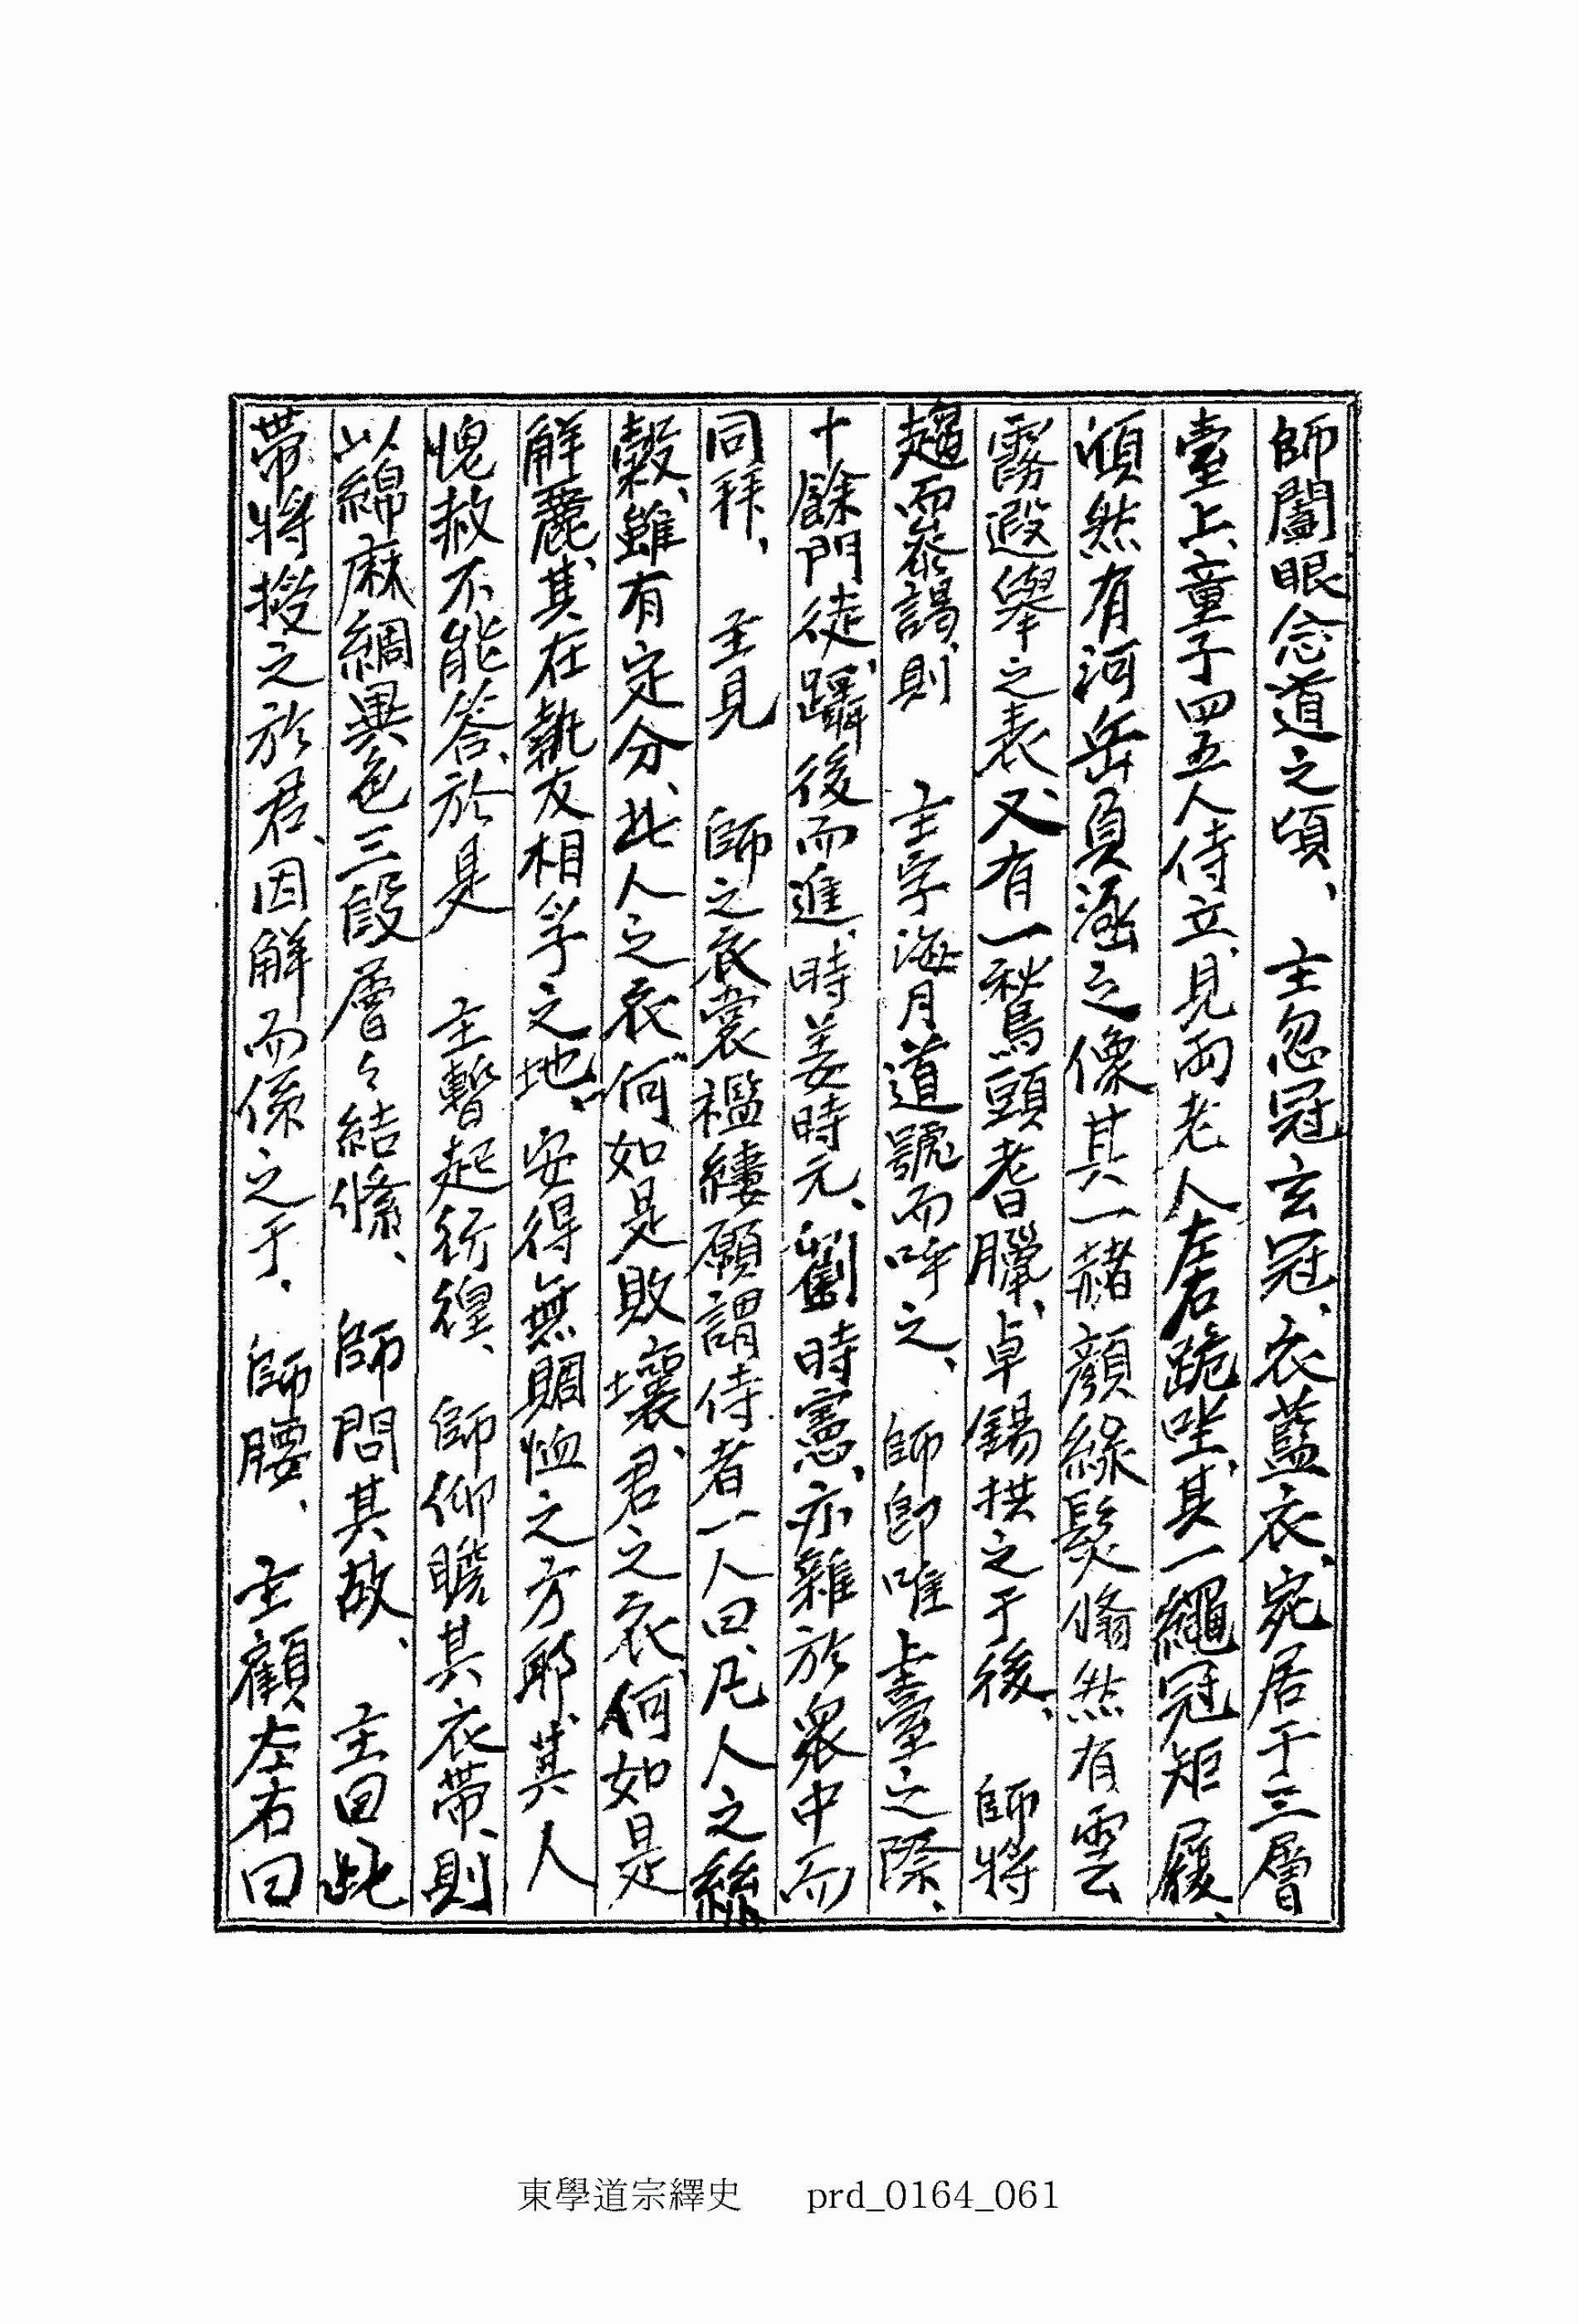 師闔眼念道之頃、　主忽冠玄冠、衣藍衣、宛居于三層
臺上、童子四五人侍立、見兩老人、左右跪坐、其一繩冠矩履、
頎然有河岳負涵之像、其一赭顔綠髮、翛然有雲
霧遐擧之表、又有一鶖頭耆臘、卓錫拱之于後、　師將
趨而叅謁、則　主字海月道號而呼之、　師卽唯上臺之際、
十餘門徒、躡後而進、時姜時元、劉時憲、亦雜於衆中而
同拜、　主見　師之衣裳襤縷、顧謂侍者一人曰、凡人之絲
穀、雖有定分、此人之衣、何如是敗壞、君之衣、何如是
鮮麗、其在執友相孚之地、安得無賙恤之方耶、其人
愧赧不能答、於是　主暫起彷徨、　師仰瞻其衣帶、則
以綿麻綢異色三段層々結絛、　師問其故、　主曰此
帶將授之於君、因解而係之于、　師腰、　主顧左右曰
東學道宗繹史　prd_0164_061